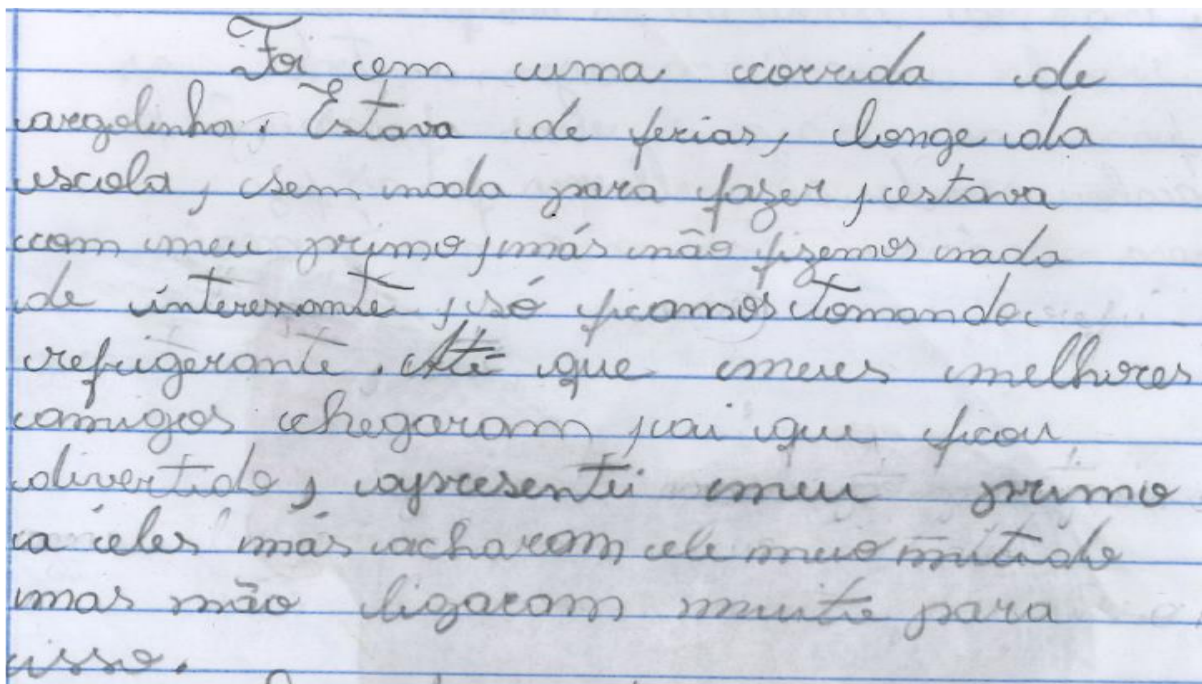 Foi em uma corrida de
argolinha. Estava de ferias, longe da
escola, sem nada para fazer, estava
com meu primo, más não fizemos nada
de interessante, só ficamos tomando
refrigerante. Até que meus melhores
amigos chegaram, ai que ficou
divertido, apresentei meu primo
a éles más acharam ele meio mitido
mas não ligaram muito para
isso.